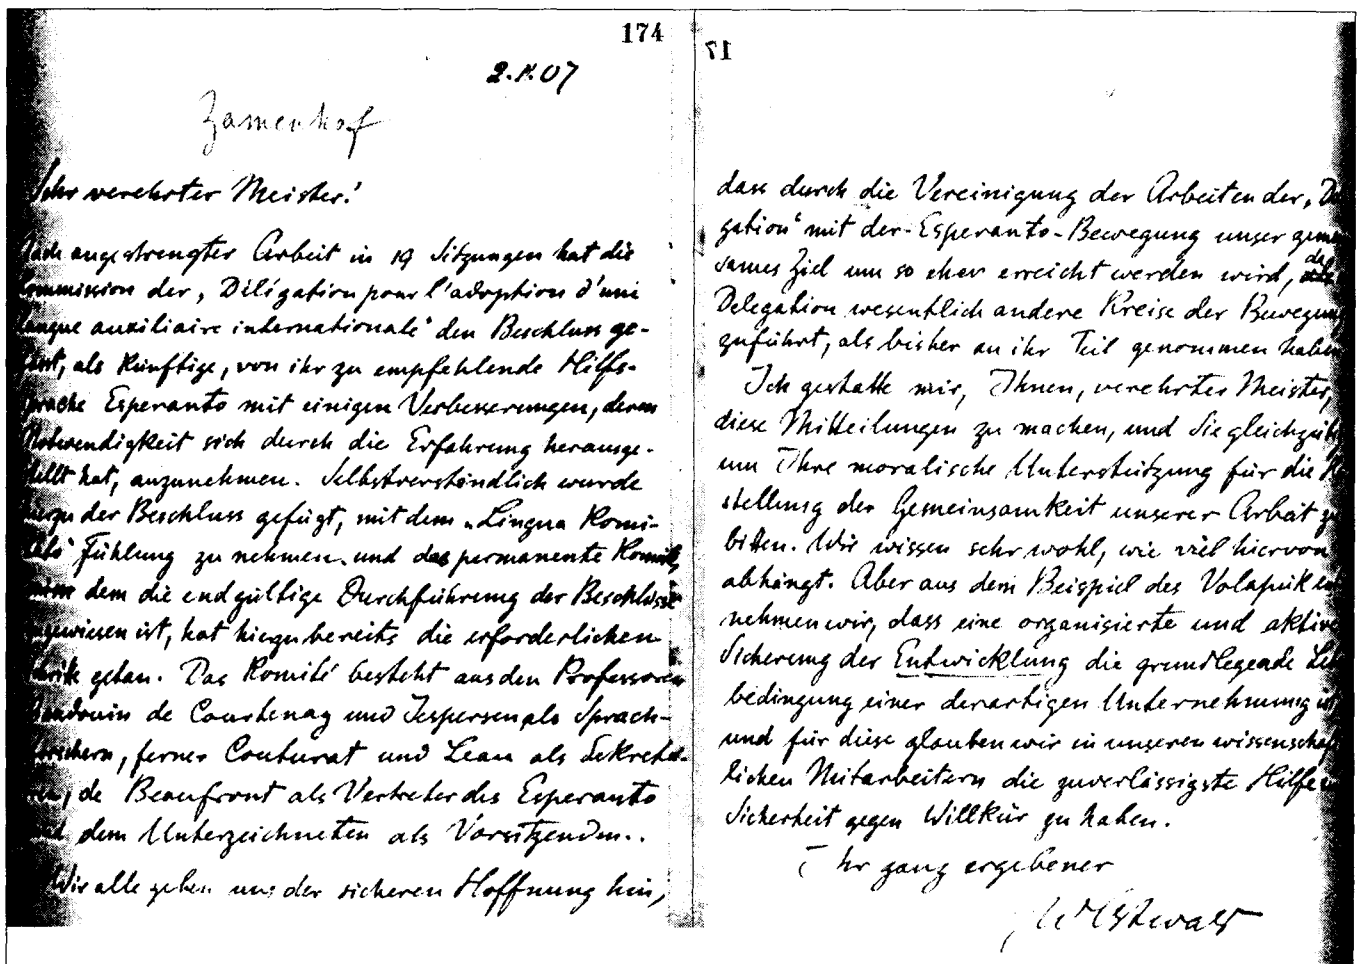 174
2.11.07
Zamenhof
Sehr verehrter Meister!
Nach angestrengter Arbeit in 19 Sitzungen hat die
Commission der „Délégation pour l'adoption d'une
langue auxiliaire internationale“ den Beschluss ge-
fasst, als künftige, von ihr zu empfehlende Hilfs-
sprache Esperanto mit einigen Verbesserungen, deren
Notwendigkeit sich durch die Erfahrung herausge-
stellt hat, anzunehmen. Selbstverständlich wurde
hierzu der Beschluss gefügt, mit dem „Lingva Komi-
tato“ Fühlung zu nehmen und das permanente Komité,
dem die endgültige Durchführung der Beschlüsse
zugewiesen ist, hat hierzu bereits die erforderlichen
Schritte getan. Das Komité besteht aus den Professoren
Baudouin de Courtenay und Jespersen als Sprach-
forschern, ferner Couturat und Leau als Sekretä-
ren, de Beaufront als Vertreter des Esperanto
und dem Unterzeichneten als Vorsitzenden.
Wir alle geben uns der sicheren Hoffnung hin,
17
dass durch die Vereinigung der Arbeiten der „De
gation“ mit der Esperanto-Bewegung unser gemein
sames Ziel um so eher erreicht werden wird, da
Delegation wesentlich andere Kreise der Bewegung
zuführt, als bisher an ihr Teil genommen haben
Ich gestatte mir, Ihnen, verehrter Meister,
diese Mitteilungen zu machen, und Sie gleichzeitig
um Ihre moralische Unterstützung für die
stellung der Gemeinsamkeit unserer Arbeit zu
bitten. Wir wissen sehr wohl, wie viel hiervon
abhängt. Aber aus dem Beispiel des Volapük ent
nehmen wir, dass eine organisierte und aktive
Sicherung der Entwicklung die grundlegende Leb
bedingung einer derartigen Unternehmung ist
und für diese glauben wir in unseren wissenschaft
lichen Mitarbeitern die zuverlässigste Hilfe
Sicherheit gegen Willkür zu haben.
Ihr ganz ergebener
W Ostwald